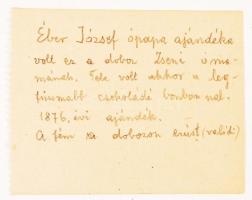 Éber József ópapa ajándéka
volt ez a doboz Zseni óma-
mának. Tele volt akkor a leg-
finomabb csokoládé bonbonnal.
1876. évi ajándék.
A fém a dobozon ezüst (valódi)